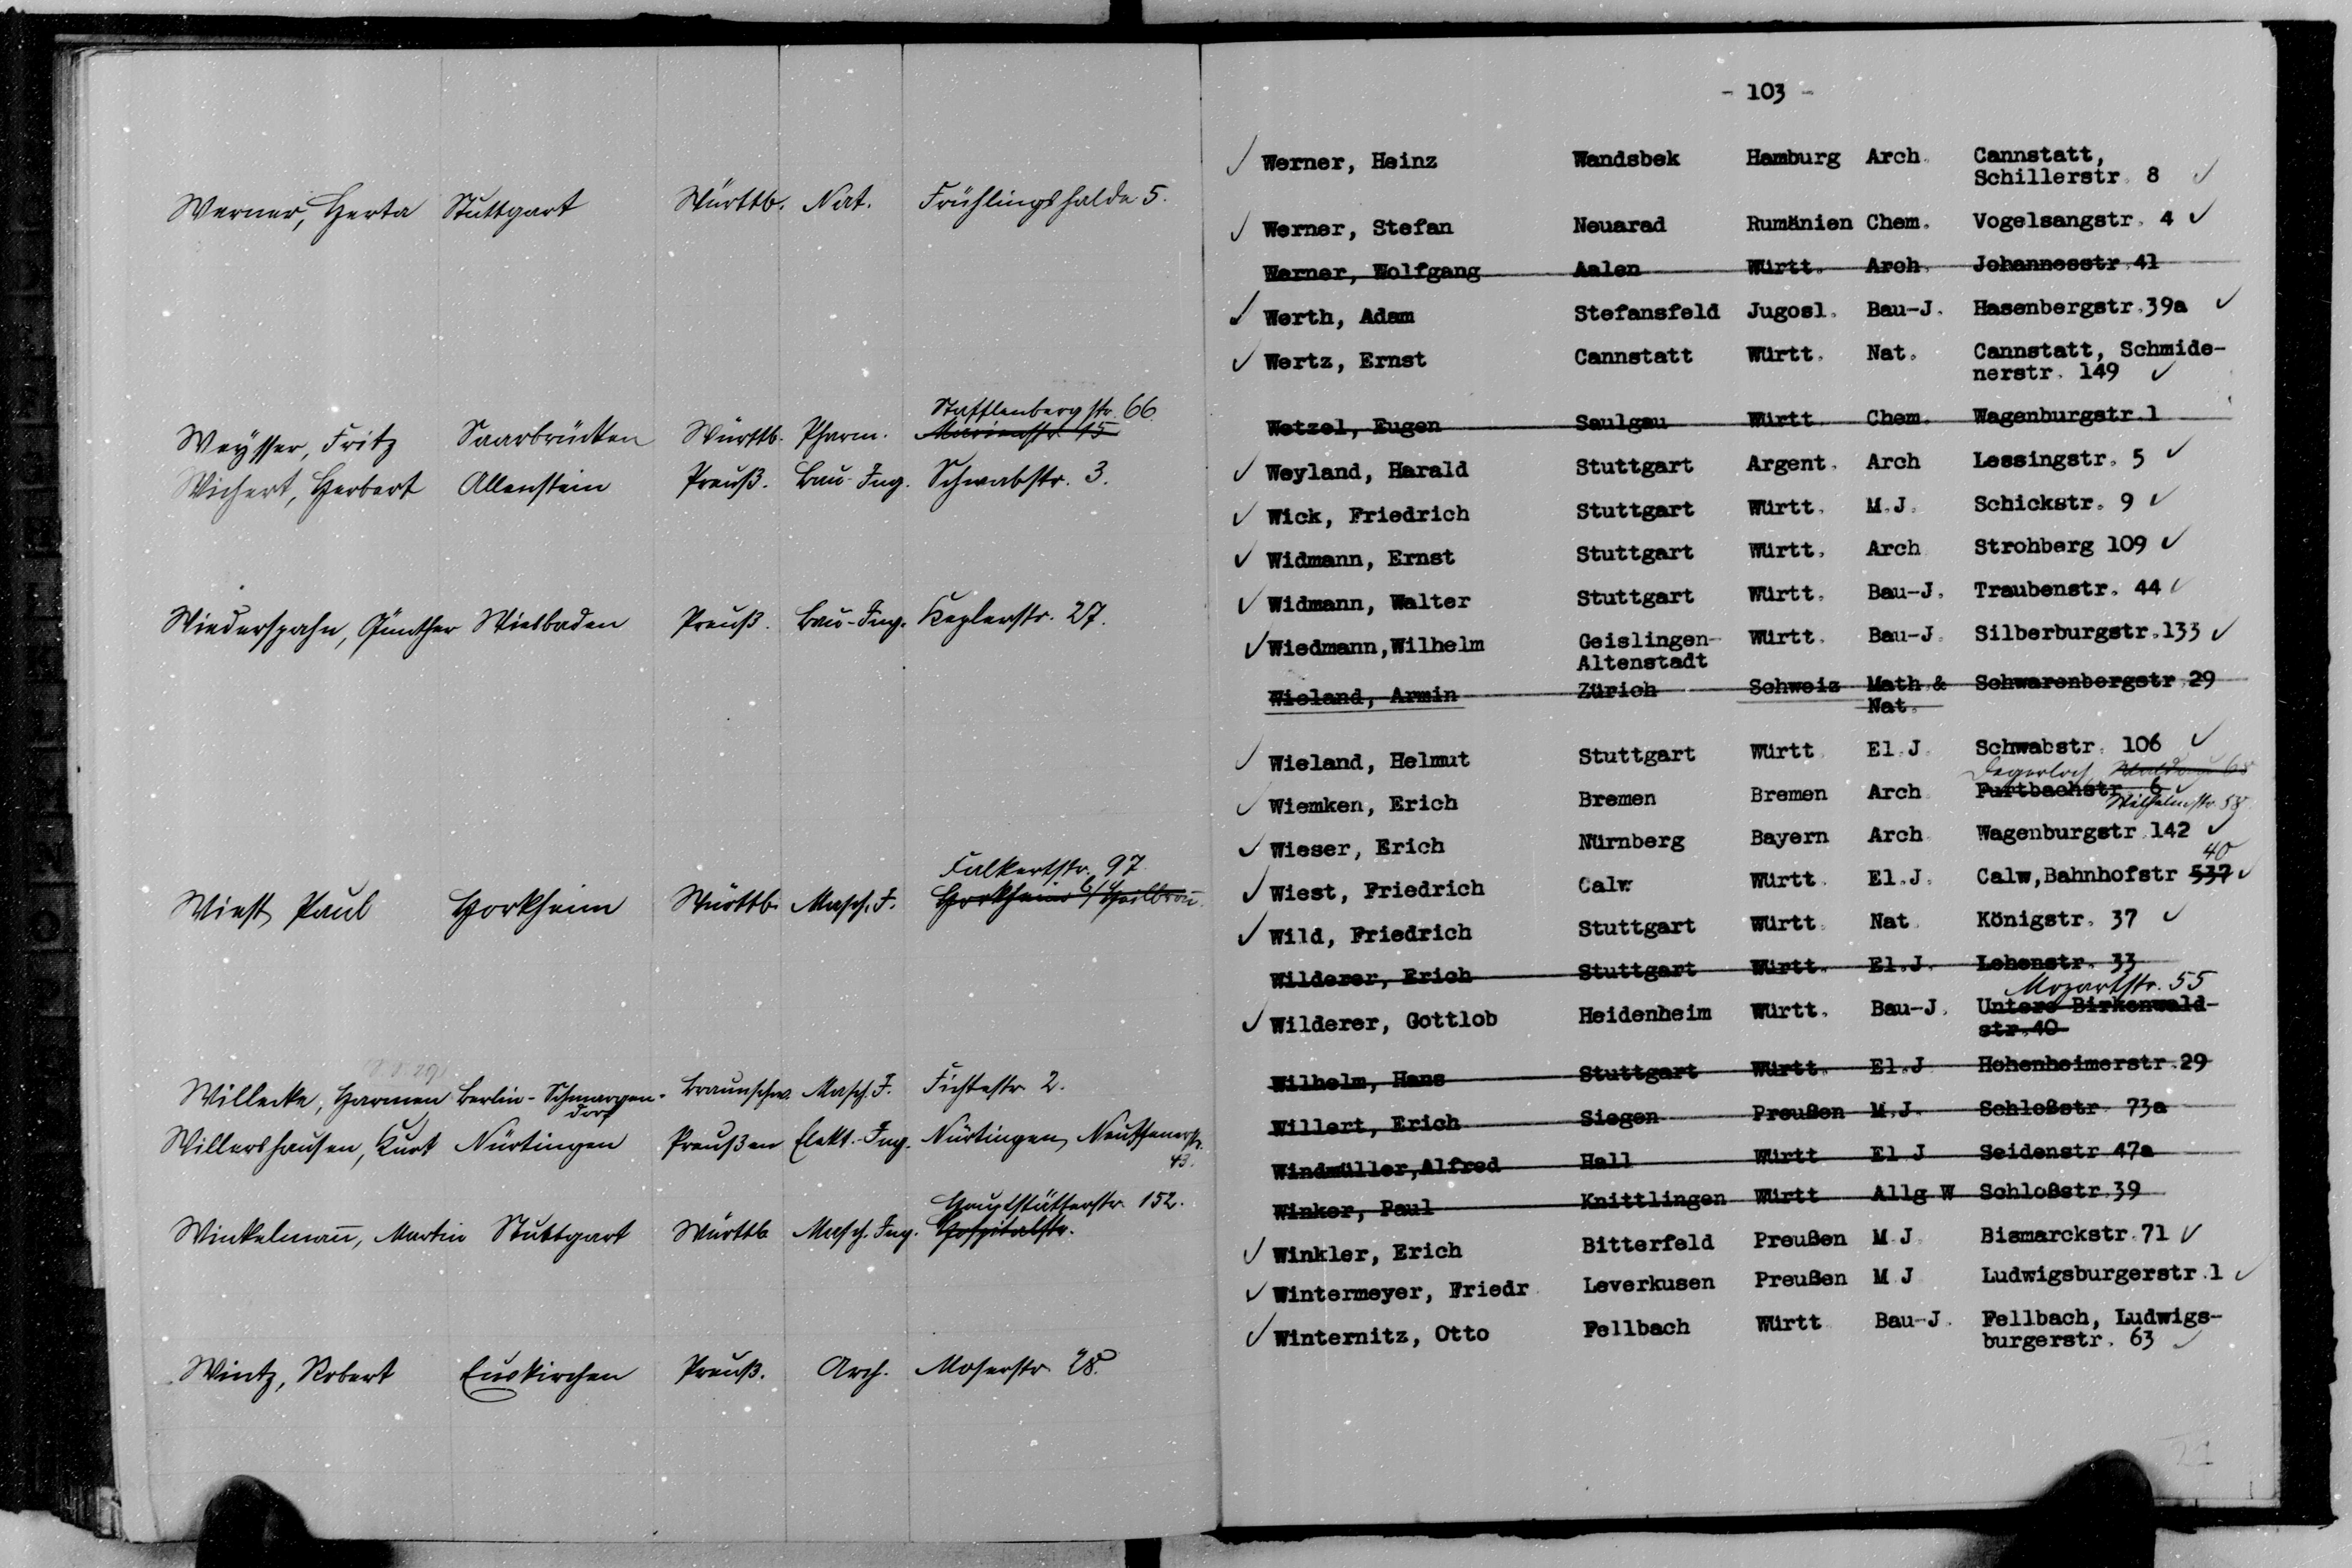 Werner, Herta Stuttgart Württb. Nat. Frühlingshalde 5.
Stafflenbergstr. 66
Weysser, Fritz Saarbrücken Württb. Pharm. Marienstr. 15
Wichert, Herbert Allenstein Preuß. Bau-Ing. Schwabstr. 3.
Wiederspahn, Günther Wiesbaden Preuß. Bau-Ing. Keplerstr. 27.
Falkertstr. 97
Wiest, Paul Horkheim Württb. Masch. I. Horkheim b/Heilbronn.
Willecke, Harmen Berlin-Schmargen- Braunschw. Masch. I. Fichtestr. 2.
dorf
Willershausen, Kurt Nürtingen Preußen Elekt.-Ing. Nürtingen, Neuffenerstr.
43.
Hauptstätterstr. 152.
Winkelmann, Martin Stuttgart Württb. Masch. Ing. Hospitalstr.
Wintz, Robert Euskirchen Preuß. Arch. Moserstr. 28.
- 103 -
Werner, Heinz Wandsbek Hamburg Arch. Cannstatt,
Schillerstr. 8
Werner, Stefan Neuarad Rumänien Chem. Vogelsangstr. 4
Werner, Wolfgang Aalen Württ. Arch. Johannesstr.41
Werth, Adam Stefansfeld Jugosl. Bau-J. Hasenbergstr.39a
Wertz, Ernst Cannstatt Württ. Nat. Cannstatt, Schmide-
nerstr. 149
Wetzel, Eugen Saulgau Württ Chem. Wagenburgstr.1
Weyland, Harald Stuttgart Argent. Arch Lessingstr. 5
Wick, Friedrich Stuttgart Württ. M.J. Schickstr. 9
Widmann, Ernst Stuttgart Württ. Arch Strohberg 109
Widmann, Walter Stuttgart Württ. Bau-J. Traubenstr. 44
Wiedmann,Wilhelm Geislingen- Württ. Bau-J. Silberburgstr.133
Altenstadt
Wieland, Armin Zürich Schweiz Math.& Schwarenbergstr.29
Nat.
Wieland, Helmut Stuttgart Württ El.J. Schwabstr. 106
Degerloch,
Wiemken, Erich Bremen Bremen Arch. Furtbachstr. 6
Wilhelmstr. 58.
Wieser, Erich Nürnberg Bayern Arch. Wagenburgstr.142
40
Wiest, Friedrich Calw Württ. El.J. Calw,Bahnhofstr 537
Wild, Friedrich Stuttgart Württ. Nat. Königstr. 37
Wilderer, Erich Stuttgart Württ. El.J. Lehenstr. 33
Mozartstr. 55
Wilderer, Gottlob Heidenheim Württ. Bau-J. Untere Birkenwald-
str.40
Wilhelm, Hans Stuttgart Württ. El.J Hohenheimerstr.29
Willert, Erich Siegen Preußen M.J. Schloßstr. 73a
Windmüller,Alfred Hall Württ El J Seidenstr 47a
Winker, Paul Knittlingen Württ Allg W Schloßstr.39
Winkler, Erich Bitterfeld Preußen M.J. Bismarckstr.71
Wintermeyer, Friedr. Leverkusen Preußen M J Ludwigsburgerstr.1
Winternitz, Otto Fellbach Württ Bau-J. Fellbach, Ludwigs-
burgerstr. 63